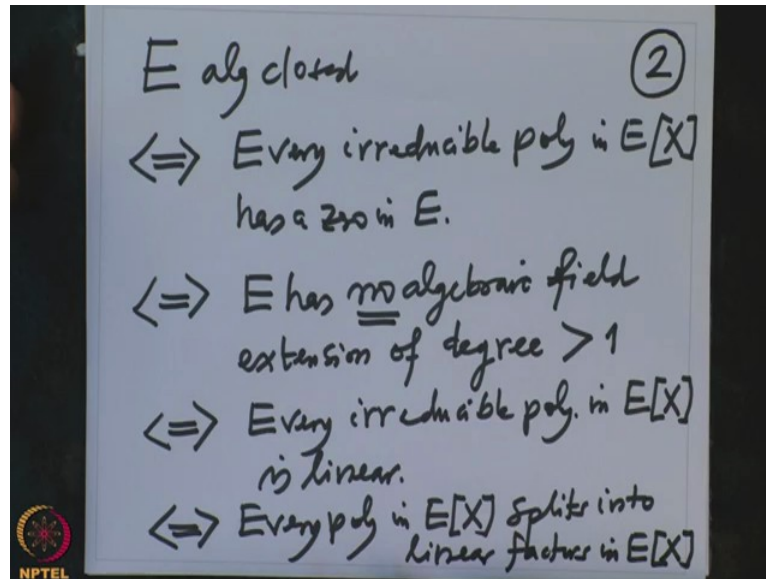 E alg closed
②
<=> Every irreducible poly in E[X]
has a zero in E.
<=> E has no algebraic field
extension of degree > 1
<=> Every irreducible poly. in E[X]
is linear.
<=> Every poly in E[X] splits into
linear factors in E[X]
NPTEL